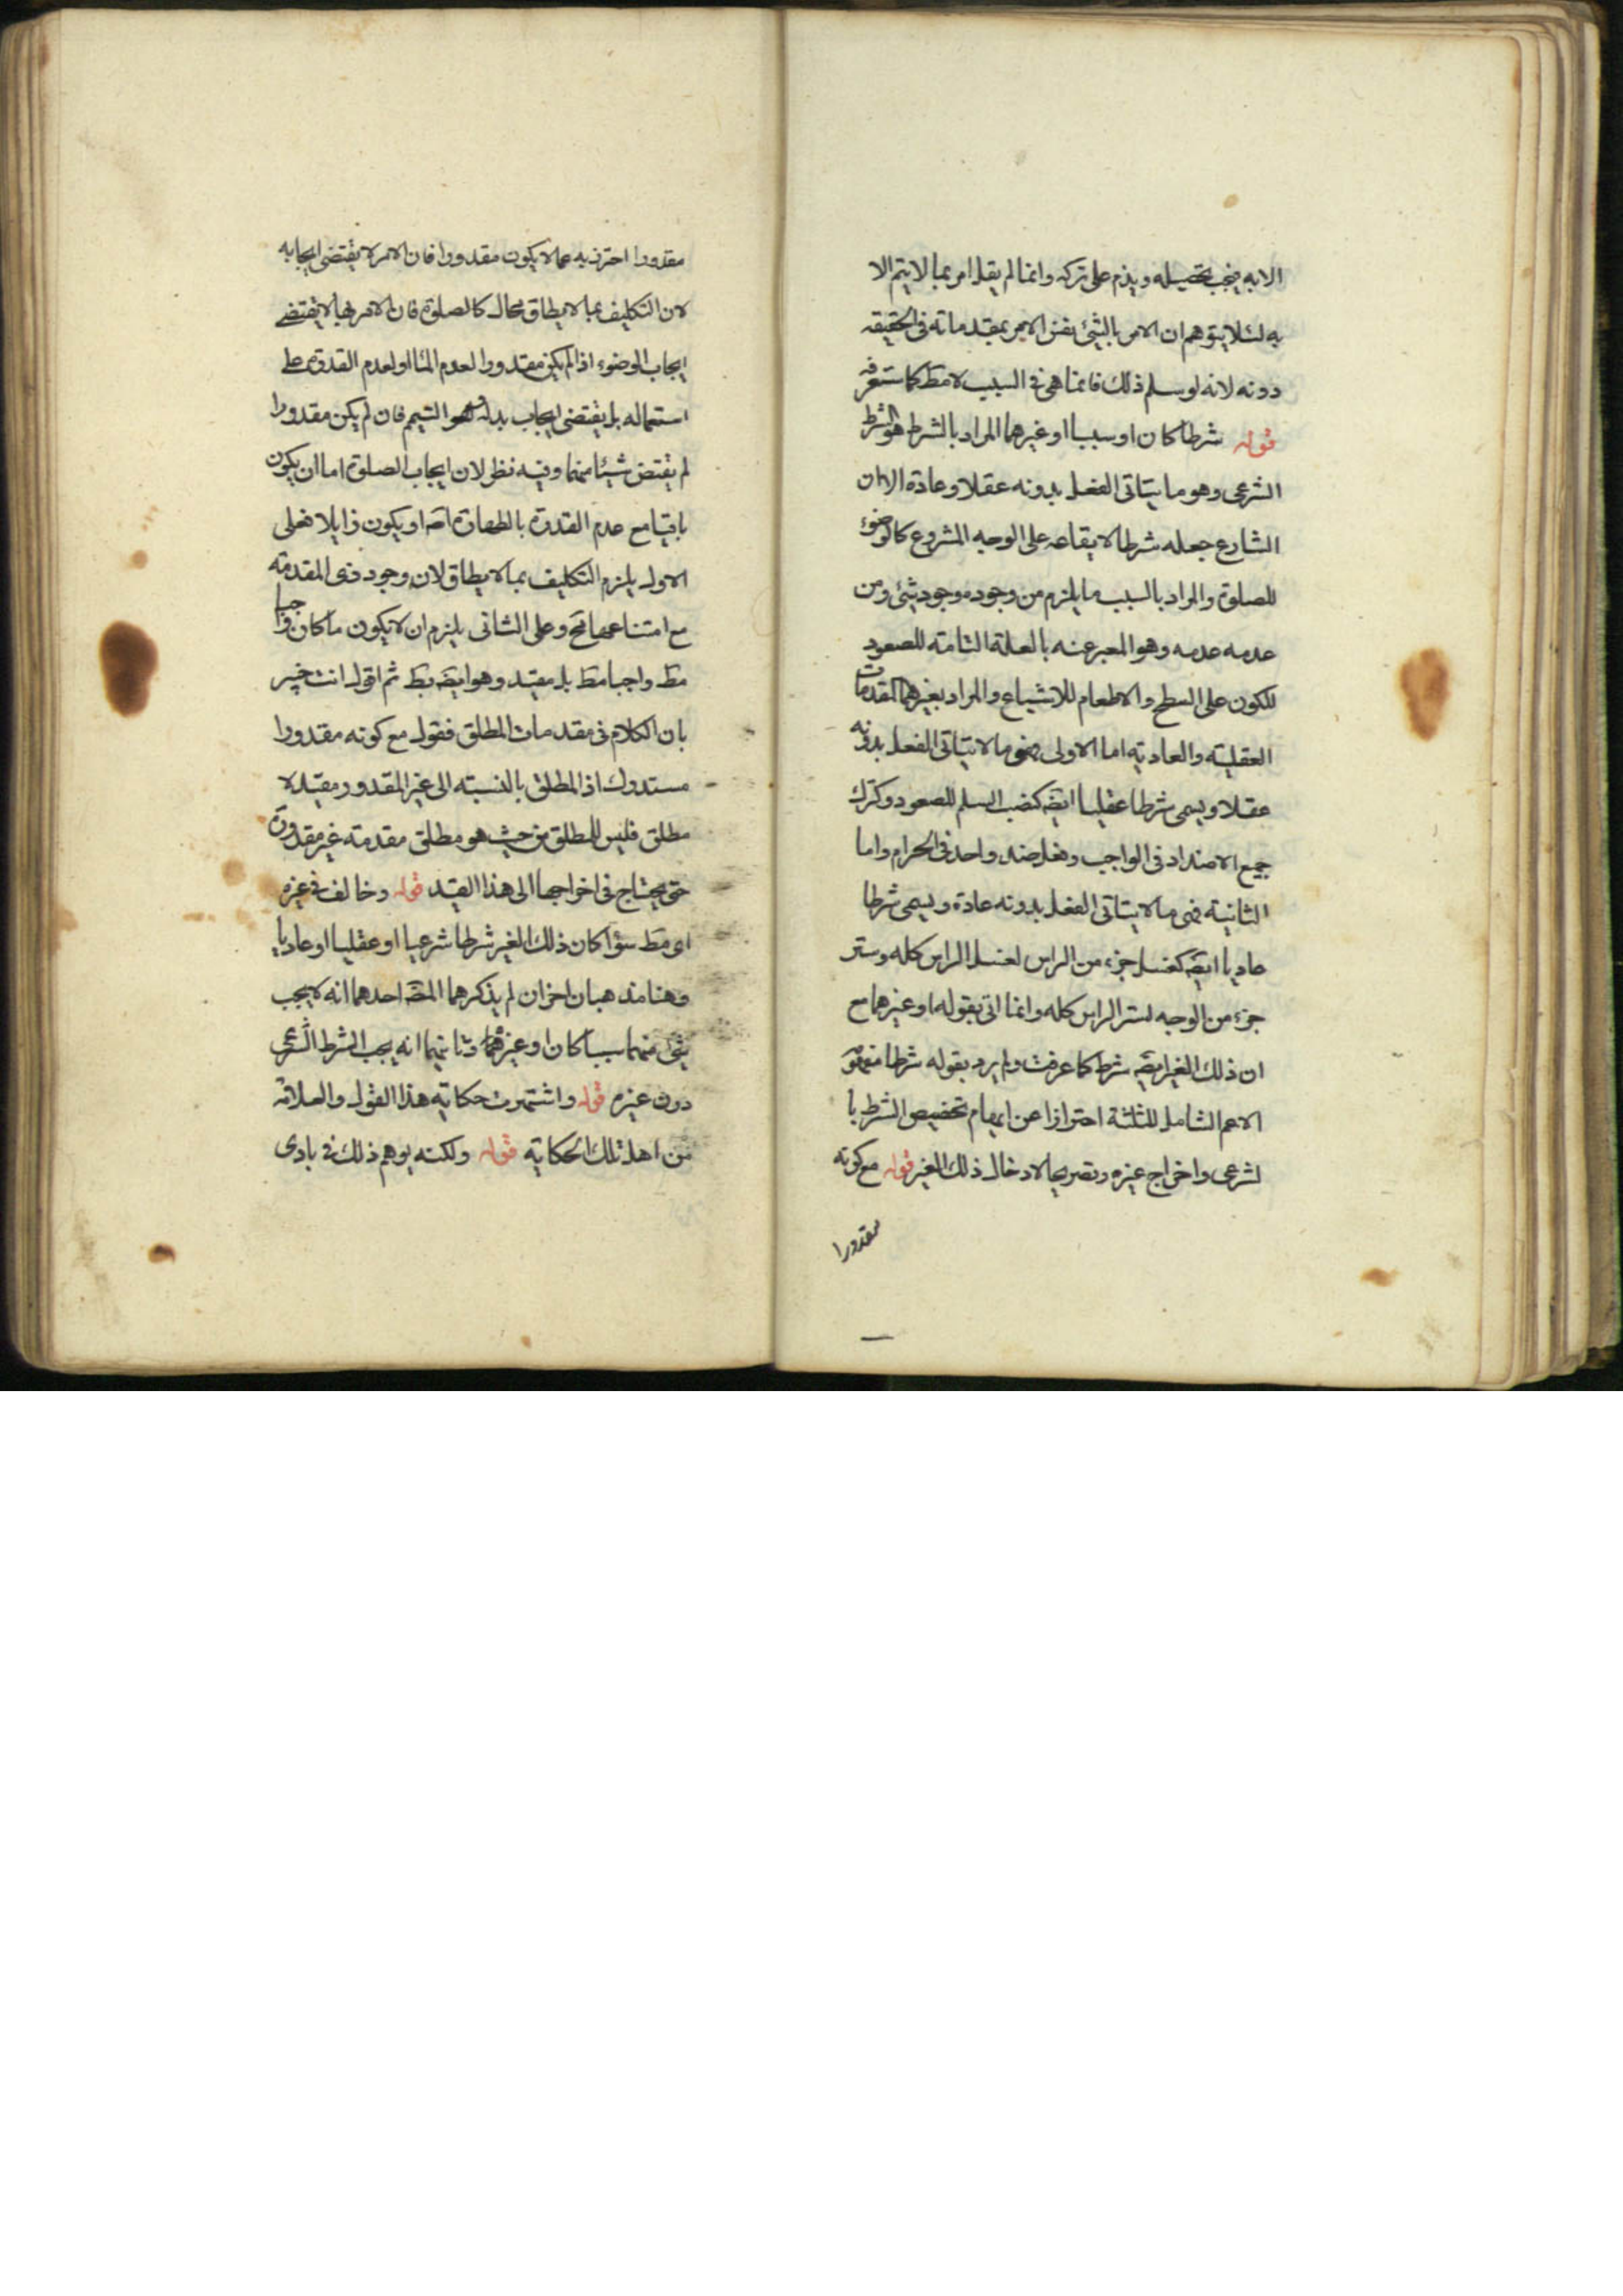 الا به فيجب تحصيله ويذم على تركه وانما لم يقل امر بما لا يتم الا
به لئلا يتوهم ان الامر بالشئ نفس الامر بمقدماته فى الحقيقه
دونه لانه لو سلم ذلك فانما هى فى السبب لا مط كما ستعرفه
قوله شرطا كان او سببا او غيرهما المراد بالشرط هو الشرط
الشرعى وهو ما يتاتى الفعل بدونه عقلا وعادة الا ان
الشارع جعله شرطا لايقاعه على الوجه المشروع كالوضوء
للصلوة والمراد بالسبب ما يلزم من وجوده وجود شئ ومن
عدمه عدمه وهو المعبر عنه بالعلة التامه للصعود
للكون على السطح والاطعام للاشباع والمراد بغيرهما المقدمات
العقليته والعاديته اما الاولى فهى ما لا يتاتى الفعل بدونه
عقلا ويسمى شرطا عقليا ايضه كنصب السلم للصعود وكترك
جميع الاضداد فى الواجب وفعل ضد واحد فى الحرام واما
الثانيته فهى ما لا يتاتى الفعل بدونه عادة ويسمى شرطا
عاديا ايضه كغسل جزء من الراس لغسل الراس كله وستر
جزء من الوجه لستر الراس كله وانما اتى بقوله او غيرهما مع
ان ذلك الغير ايضه شرط كما عرفت ولم يرد بقوله شرطا
الاعم الشامل للثلثة احترازا عن ايهام تخصيص الشرط با
لشرعى واخراج غيره وتصريحا لادخال ذلك الغير قوله مع كونه
مقدورا
مقدورا احترز به عما لا يكون مقدورا فان الامر لا يقتضى ايجابه
لان التكليف بما لا يطاق محال كالصلوة فان الامر بها لا يقتضى
ايجاب الوضوء اذا لم يكن مقدورا لعدم الماء او لعدم القدرة على
استعماله بل يقتضى ايجاب بدله وهو التيمم فان لم يكن مقدورا
لم يقتض شيئا منهما وفيه نظر لان ايجاب الصلوة اما ان يكون
باقيا مع عدم القدرة بالطهارة او يكون زايلا فعلى
الاول يلزم التكليف بما لا يطاق لان وجود ذى المقدمة
مع امتناعها مح وعلى الثانى يلزم ان لا يكون ما كان واجبا
مط واجبا مط بل مقيد وهو ايضه بط ثم اقول انت خبير
بان الكلام فى مقدمات المطلق فقوله مع كونه مقدورا
مستدرك اذ المطلق بالنسبته الى غير المقدور مقيد لا
مطلق فليس للمطلق من حيث هو مطلق مقدمته غير مقدورة
حتى يحتاج فى اخراجها الى هذا القيد قوله وخالف فى غيره
اى مط سواء كان ذلك الغير شرطا شرعيا او عقليا او عاديا
وهنا مذهبان اخران لم يذكرهما المصه احدهما انه لا يجب
شئ منهما سببا كان او غيره وثانيهما انه يجب الشرط الشرعى
دون غيره قوله واشتهرت حكايته هذا القول والعلامة
من اهل تلك الحكايته قوله ولكنه يوهم ذلك فى بادى